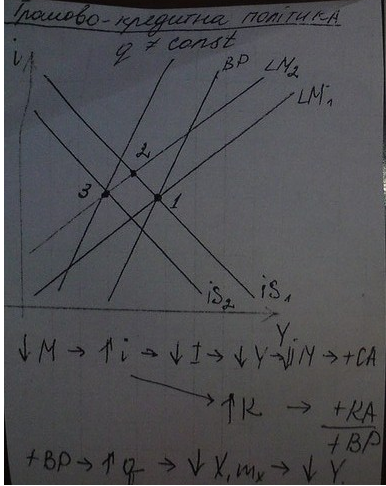 Грошово-кредитна політика
q ≠ const
i
BP
LM₂
LM₁
2
3
1
iS₂
iS₁
Y
↓M → ↑i → ↓I → ↓Y → → +CA
↑K → +KA
+BP
+BP → ↑q → ↓X, → ↓Y